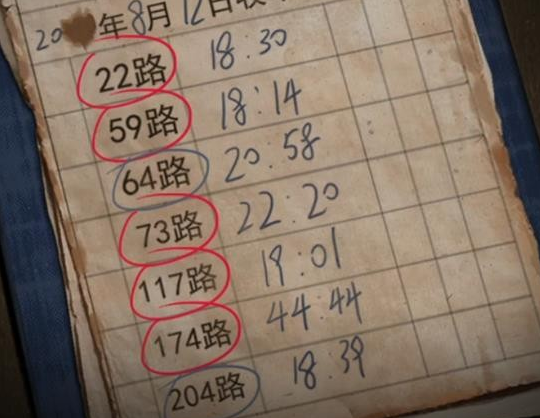 20 年8月12日收
22路 18:30
59路 18:14
64路 20:58
73路 22:20
117路 19:01
174路 44:44
204路 18:39